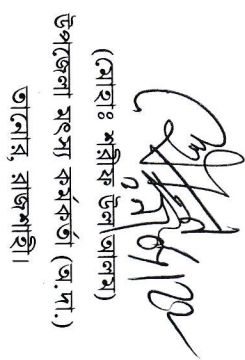 (মোহাঃ শরীফ উল আলম)
উপজেলা মৎস্য কর্মকর্তা (অ.দা.)
তানোর, রাজশাহী।